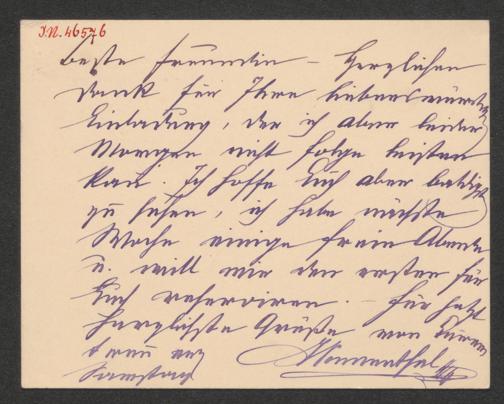 I.N. 46576
Beste Freundin – Herzlichen
Dank für Ihre liebenswürdige
Einladung, der ich aber leider
Morgen nicht Folge leisten
kann. Ich hoffe Euch aber baldigst
zu sehen, ich habe nächste
Woche einige freie Abende
u. will mir den ersten für
Euch reserviren. – Für jetzt
herzlichste Grüße von Eurem
treu erg
Blumenthal
Samstag